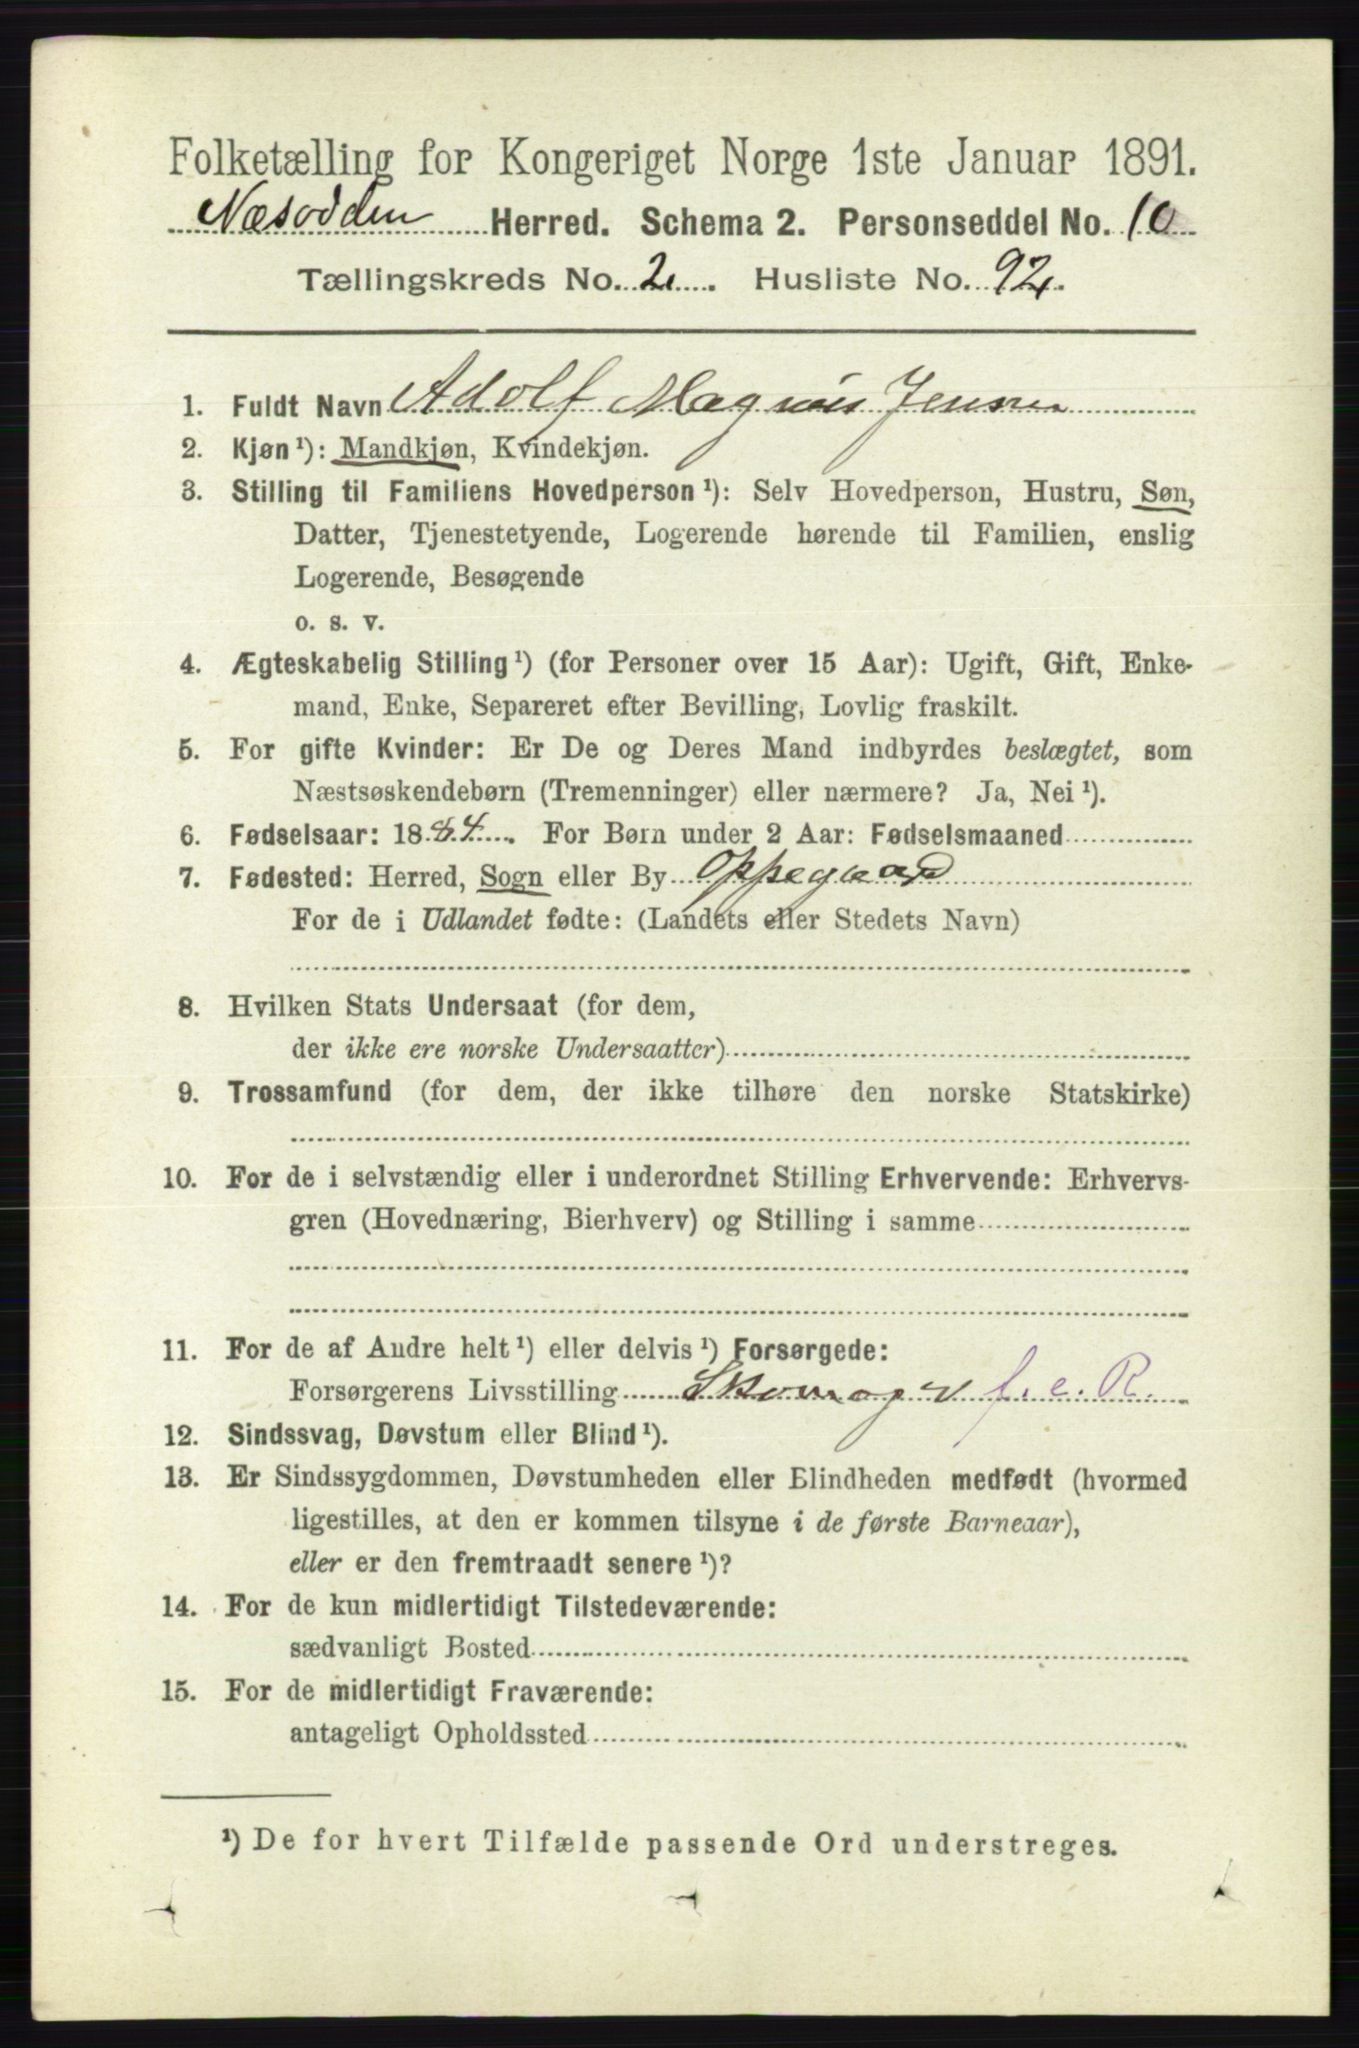 Folketælling for Kongeriget Norge 1ste Januar 1891.
Næsodden Herred. Schema 2. Personseddel No. 10
Tællingskreds No. 2. Husliste No. 92.
1. Fuldt Navn Adolf Magnus Jensen
2. Kjøn ¹): Mandkjøn, Kvindekjøn.
3. Stilling til Familiens Hovedperson ¹): Selv Hovedperson, Hustru, Søn,
Datter, Tjenestetyende, Logerende hørende til Familien, enslig
Logerende, Besøgende
o. s. v.
4. Ægteskabelig Stilling ¹) (for Personer over 15 Aar): Ugift, Gift, Enke-
mand, Enke, Separeret efter Bevilling, Lovlig fraskilt.
5. For gifte Kvinder: Er De og Deres Mand indbyrdes beslægtet, som
Næstsøskendebørn (Tremenninger) eller nærmere? Ja, Nei ¹).
6. Fødselsaar: 1884. For Børn under 2 Aar: Fødselsmaaned
7. Fødested: Herred, Sogn eller By Oppegaard
For de i Udlandet fødte: (Landets eller Stedets Navn)
8. Hvilken Stats Undersaat (for dem,
der ikke ere norske Undersaatter)
9. Trossamfund (for dem, der ikke tilhøre den norske Statskirke)
10. For de i selvstændig eller i underordnet Stilling Erhvervende: Erhvervs-
gren (Hovednæring, Bierhverv) og Stilling i samme
11. For de af Andre helt ¹) eller delvis ¹) Forsørgede:
Forsørgerens Livsstilling Skomager f. e. R.
12. Sindssvag, Døvstum eller Blind ¹).
13. Er Sindssygdommen, Døvstumheden eller Blindheden medfødt (hvormed
ligestilles, at den er kommen tilsyne i de første Barneaar),
eller er den fremtraadt senere ¹)?
14. For de kun midlertidigt Tilstedeværende:
sædvanligt Bosted
15. For de midlertidigt Fraværende:
antageligt Opholdssted
¹) De for hvert Tilfælde passende Ord understreges.